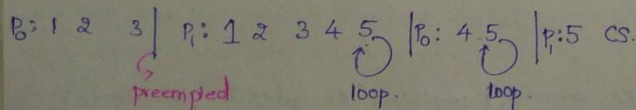 P0: 1 2 3| P1: 1 2 3 4 5 |P0: 4 5 |P1:5 CS.
preempied loop. loop.